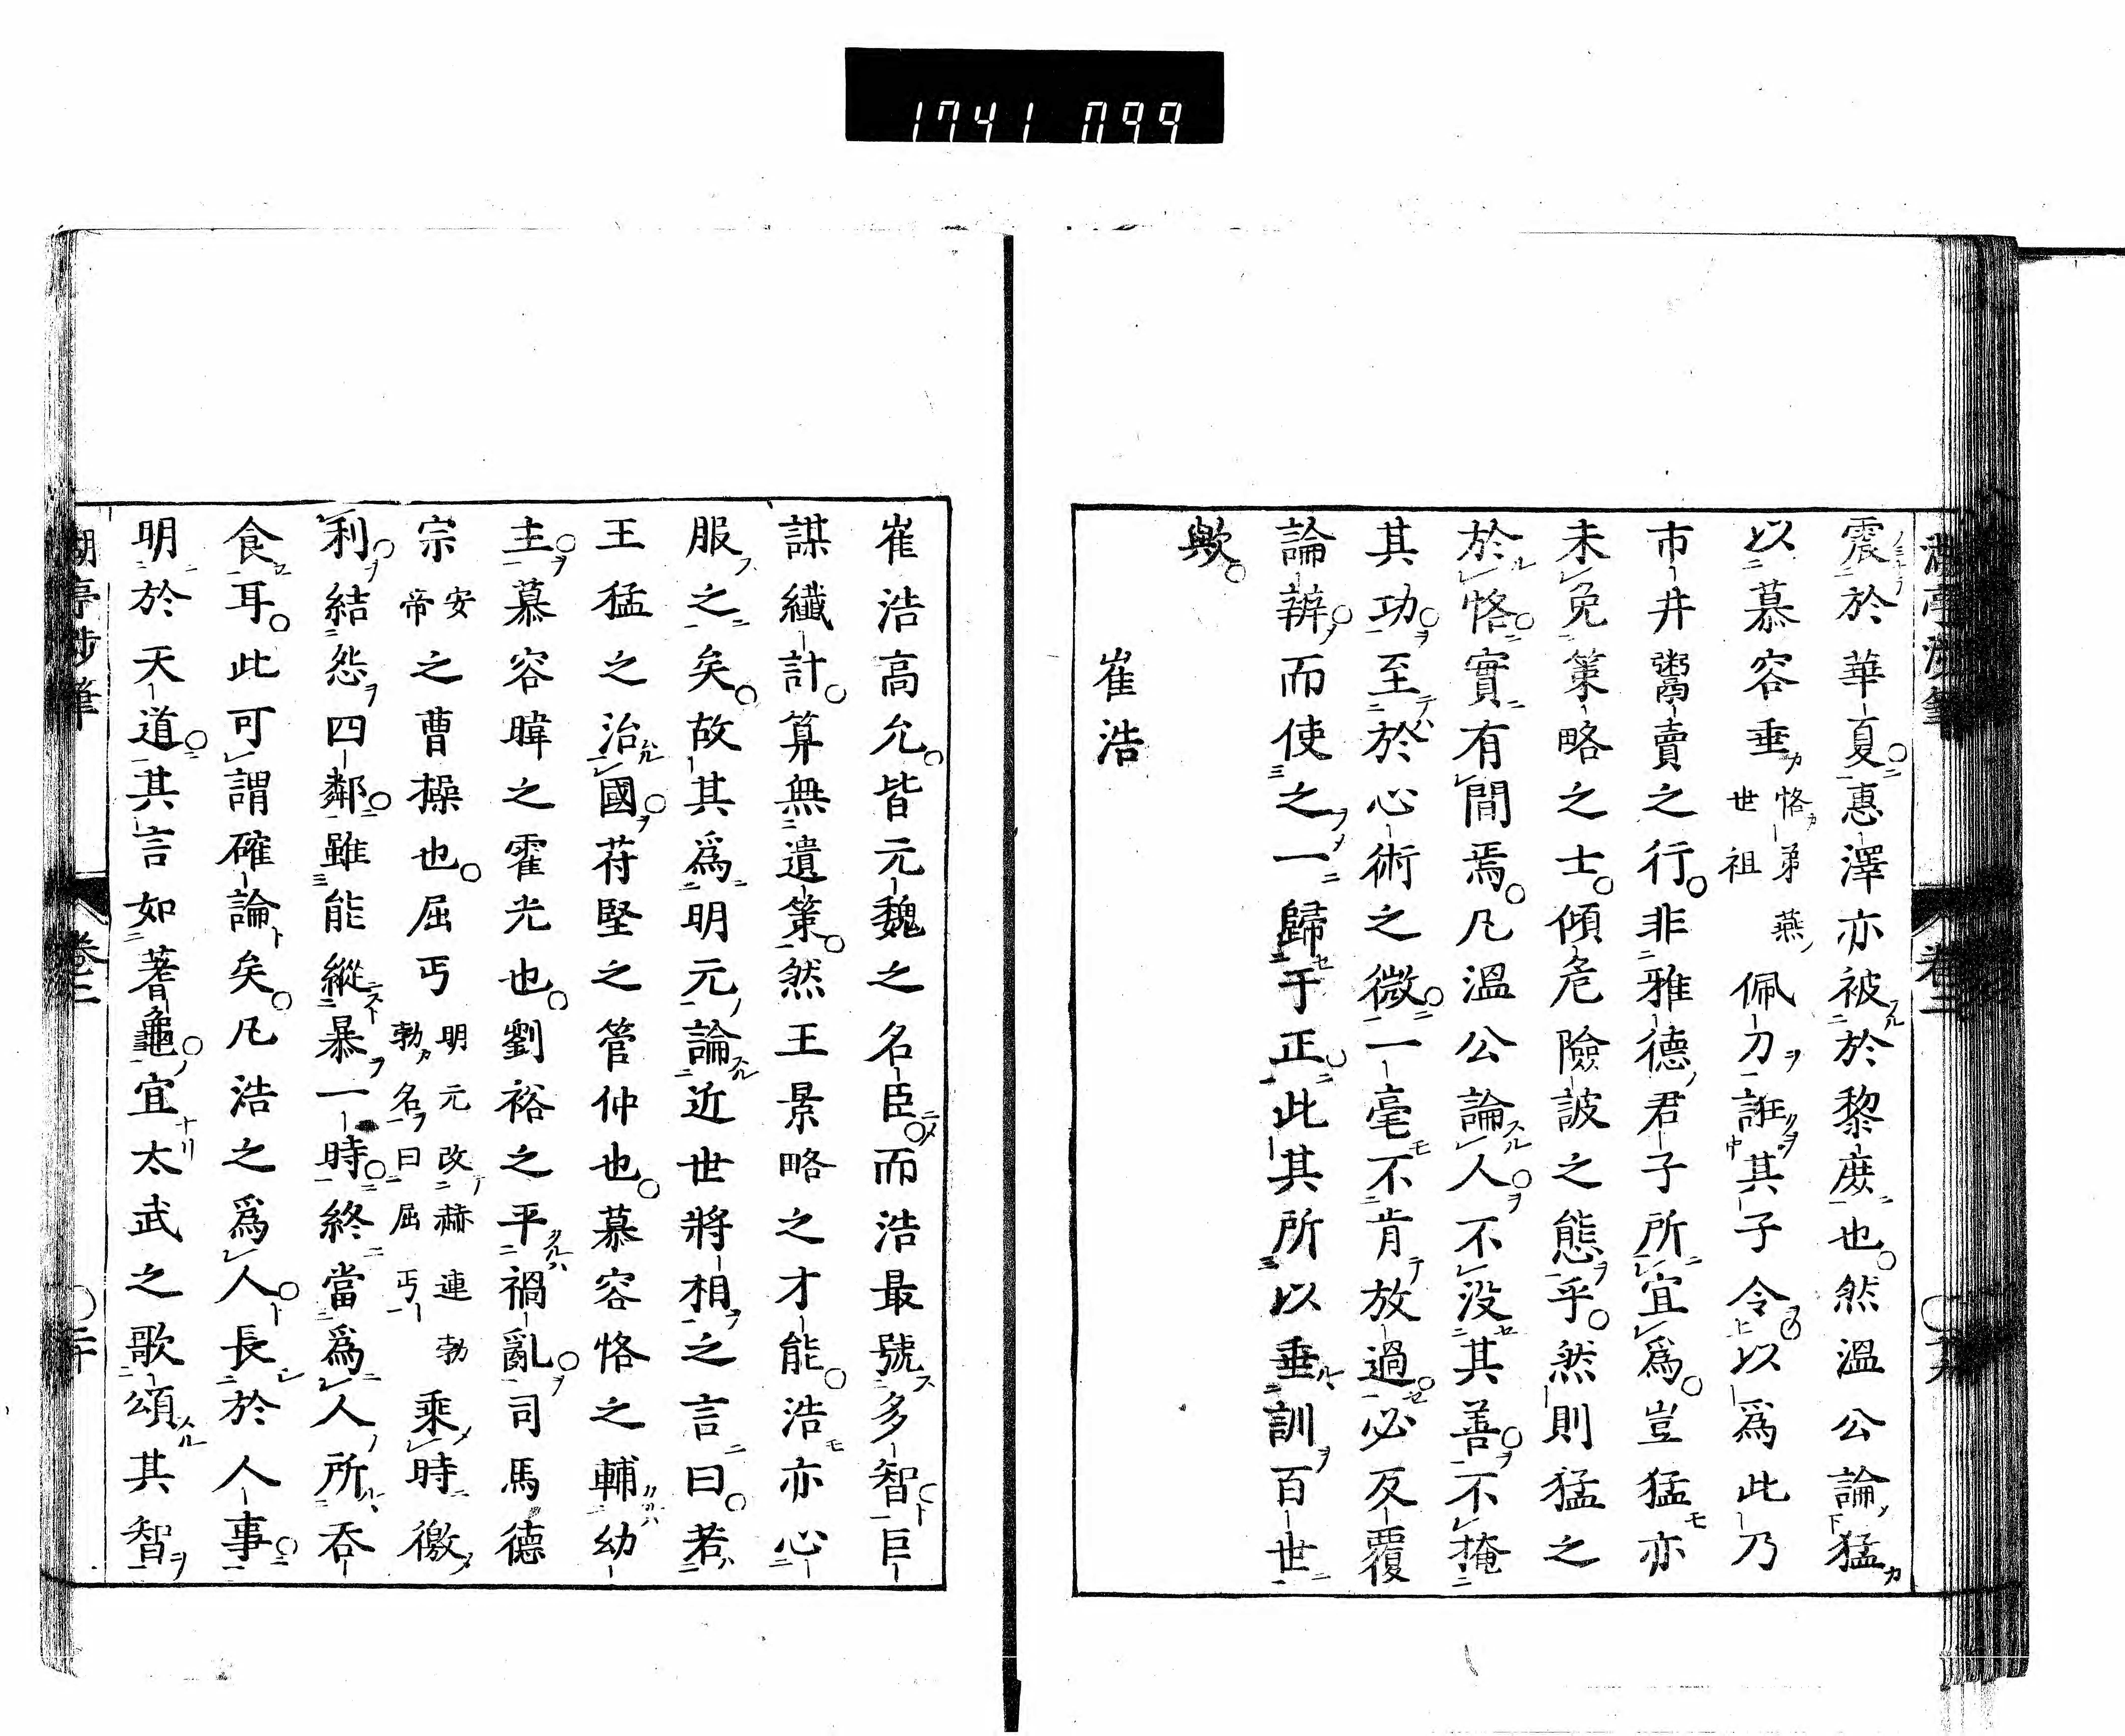 1741 099
震於華夏惠澤亦被於黎庻也然溫公論猛
以慕容垂恪弟燕世祖佩刀誑其子令以爲此乃
市井鬻賣之行非雅德君子所宜爲豈猛亦
未免策略之士傾危險詖之態乎然則猛之
於恪實有間焉凡溫公論人不没其善不掩
其功至於心術之微一毫不肯放過必反覆
論辨而使之一歸于正此其所以垂訓百世
歟
崔浩
崔浩高允皆元魏之名臣而浩最號多智巨
謀纖計算無遺策然王景略之才能浩亦心
服之矣故其爲明元論近世將相之言曰若
王猛之治國苻堅之管仲也慕容恪之輔幼
主慕容暐之霍光也劉裕之平禍亂司馬德
宗安帝之曹操也屈丐明元改赫連勃勃名曰屈丐乘時徼
利結怨四鄰雖能縱暴一時終當爲人所吞
食耳此可謂確論矣凡浩之爲人長於人事
明於天道其言如蓍龜宜太武之歌頌其智
湖亭涉筆
卷二